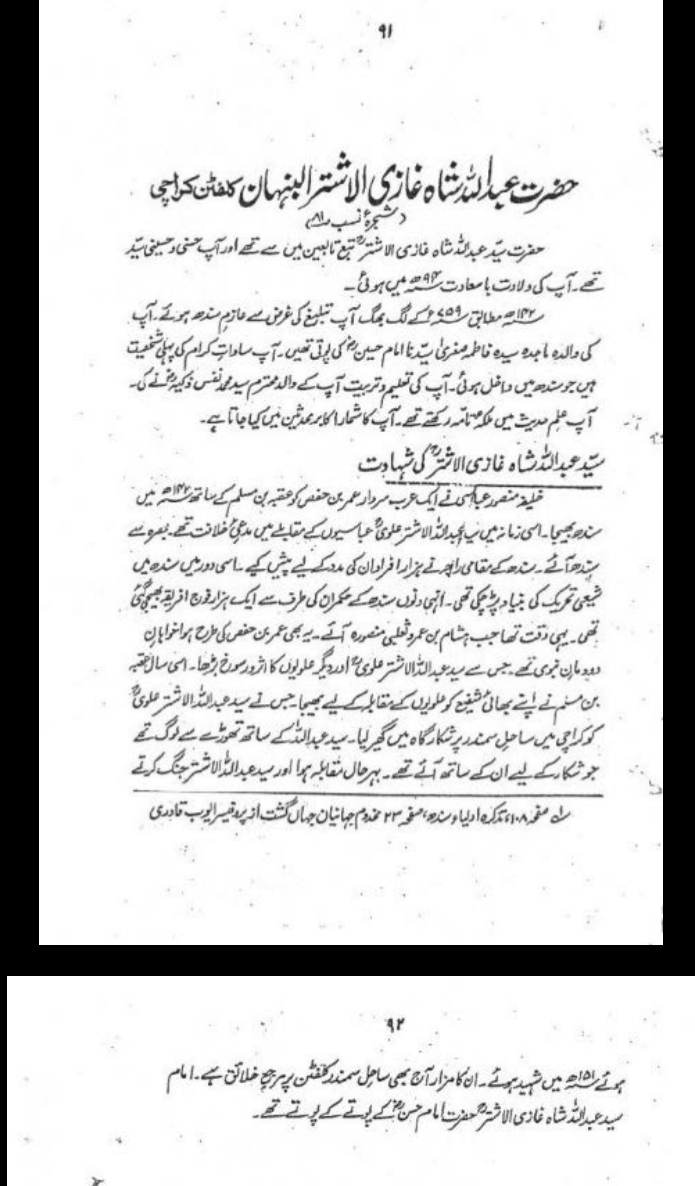 ۹۱
حضرت عبداللہ شاہ غازی الاشتر البنہان کلفٹن کراچی
(شجرۂ نسب ۸۱)
حضرت سید عبداللہ شاہ غازی الاشترؒ تبع تابعین میں سے تھے اور آپ حسنی و حسینی سید
تھے۔ آپ کی ولادت باسعادت ۹۴ھ میں ہوئی۔
۱۴۲ھ مطابق ۷۵۹ء کے لگ بھگ آپ تبلیغ کی غرض سے عازمِ سندھ ہوئے۔ آپ
کی والدہ ماجدہ سیدہ فاطمہ صغریٰ سیدنا امام حسینؓ کی پوتی تھیں۔ آپ ساداتِ کرام کی پہلی شخصیت
ہیں جو سندھ میں داخل ہوئی۔ آپ کی تعلیم و تربیت آپ کے والد محترم سید محمد نفس ذکیہؒ نے کی۔
آپ علم حدیث میں ملکہ تامہ رکھتے تھے۔ آپ کا شمار اکابر محدثین میں کیا جاتا ہے۔
سید عبداللہ شاہ غازی الاشترؒ کی شہادت
خلیفہ منصور عباسی نے ایک عرب سردار عمر بن حفص کو عقبہ بن مسلم کے ساتھ ۱۴۲ھ میں
سندھ بھیجا۔ اسی زمانہ میں سید عبداللہ الاشتر علویؒ عباسیوں کے مقابلے میں مدعیٔ خلافت تھے۔ بصرہ سے
سندھ آئے۔ سندھ کے مقامی راجہ نے ہزار افراد ان کی مدد کے لیے پیش کیے۔ اسی دور میں سندھ میں
شیعی تحریک کی بنیاد پڑ چکی تھی۔ انہی دنوں سندھ کے حکمران کی طرف سے ایک ہزار فوج افریقہ بھیجی گئی
تھی۔ یہی وقت تھا جب ہشام بن عمرو ثعلبی منصورہ آئے۔ یہ بھی عمر بن حفص کی طرح ہوا خواہانِ
دودمانِ نبوی تھے۔ جس سے سید عبداللہ الاشتر علویؒ اور دیگر علویوں کا اثر و رسوخ بڑھا۔ اسی سال عقبہ
بن مسلم نے اپنے بھائی شفیع کو علویوں کے مقابلہ کے لیے بھیجا۔ جس نے سید عبداللہ الاشتر علویؒ
کو کراچی میں ساحلِ سمندر پر شکار گاہ میں گھیر لیا۔ سید عبداللہ کے ساتھ تھوڑے سے لوگ تھے
جو شکار کے لیے ان کے ساتھ آئے تھے۔ بہرحال مقابلہ ہوا اور سید عبداللہ الاشتر جنگ کرتے
صفحہ ۱۰۸، تذکرہ اولیاء سندھ، صفحہ ۲۳ مخدوم جہانیاں جہاں گشت از پروفیسر ایوب قادری
۹۲
ہوئے ۱۵۱ھ میں شہید ہوئے۔ ان کا مزار آج بھی ساحل سمندر کلفٹن پر مرجع خلائق ہے۔ امام
سید عبداللہ شاہ غازی الاشترؒ حضرت امام حسنؓ کے پوتے کے پوتے تھے۔